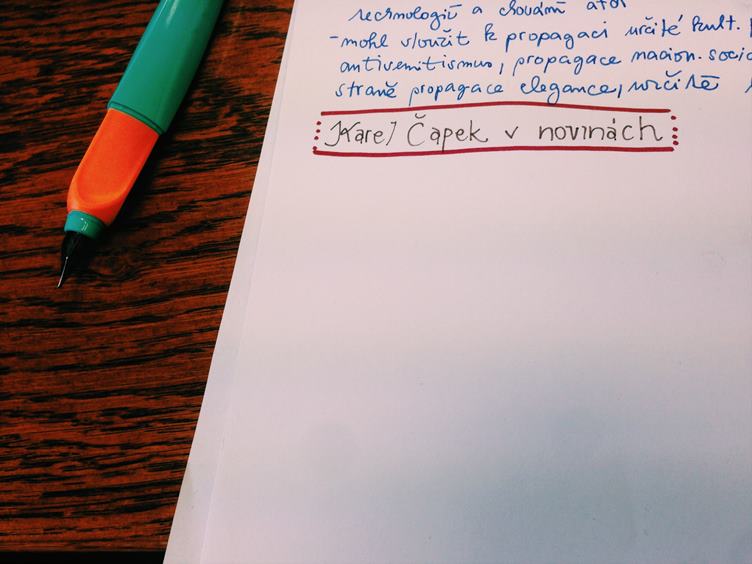 technologií a chování atd
-mohl sloužit k propagaci určité kult.
antisemitismus, propagace nacion. socia
straně propagace elegance, určité
Karel Čapek v novinách